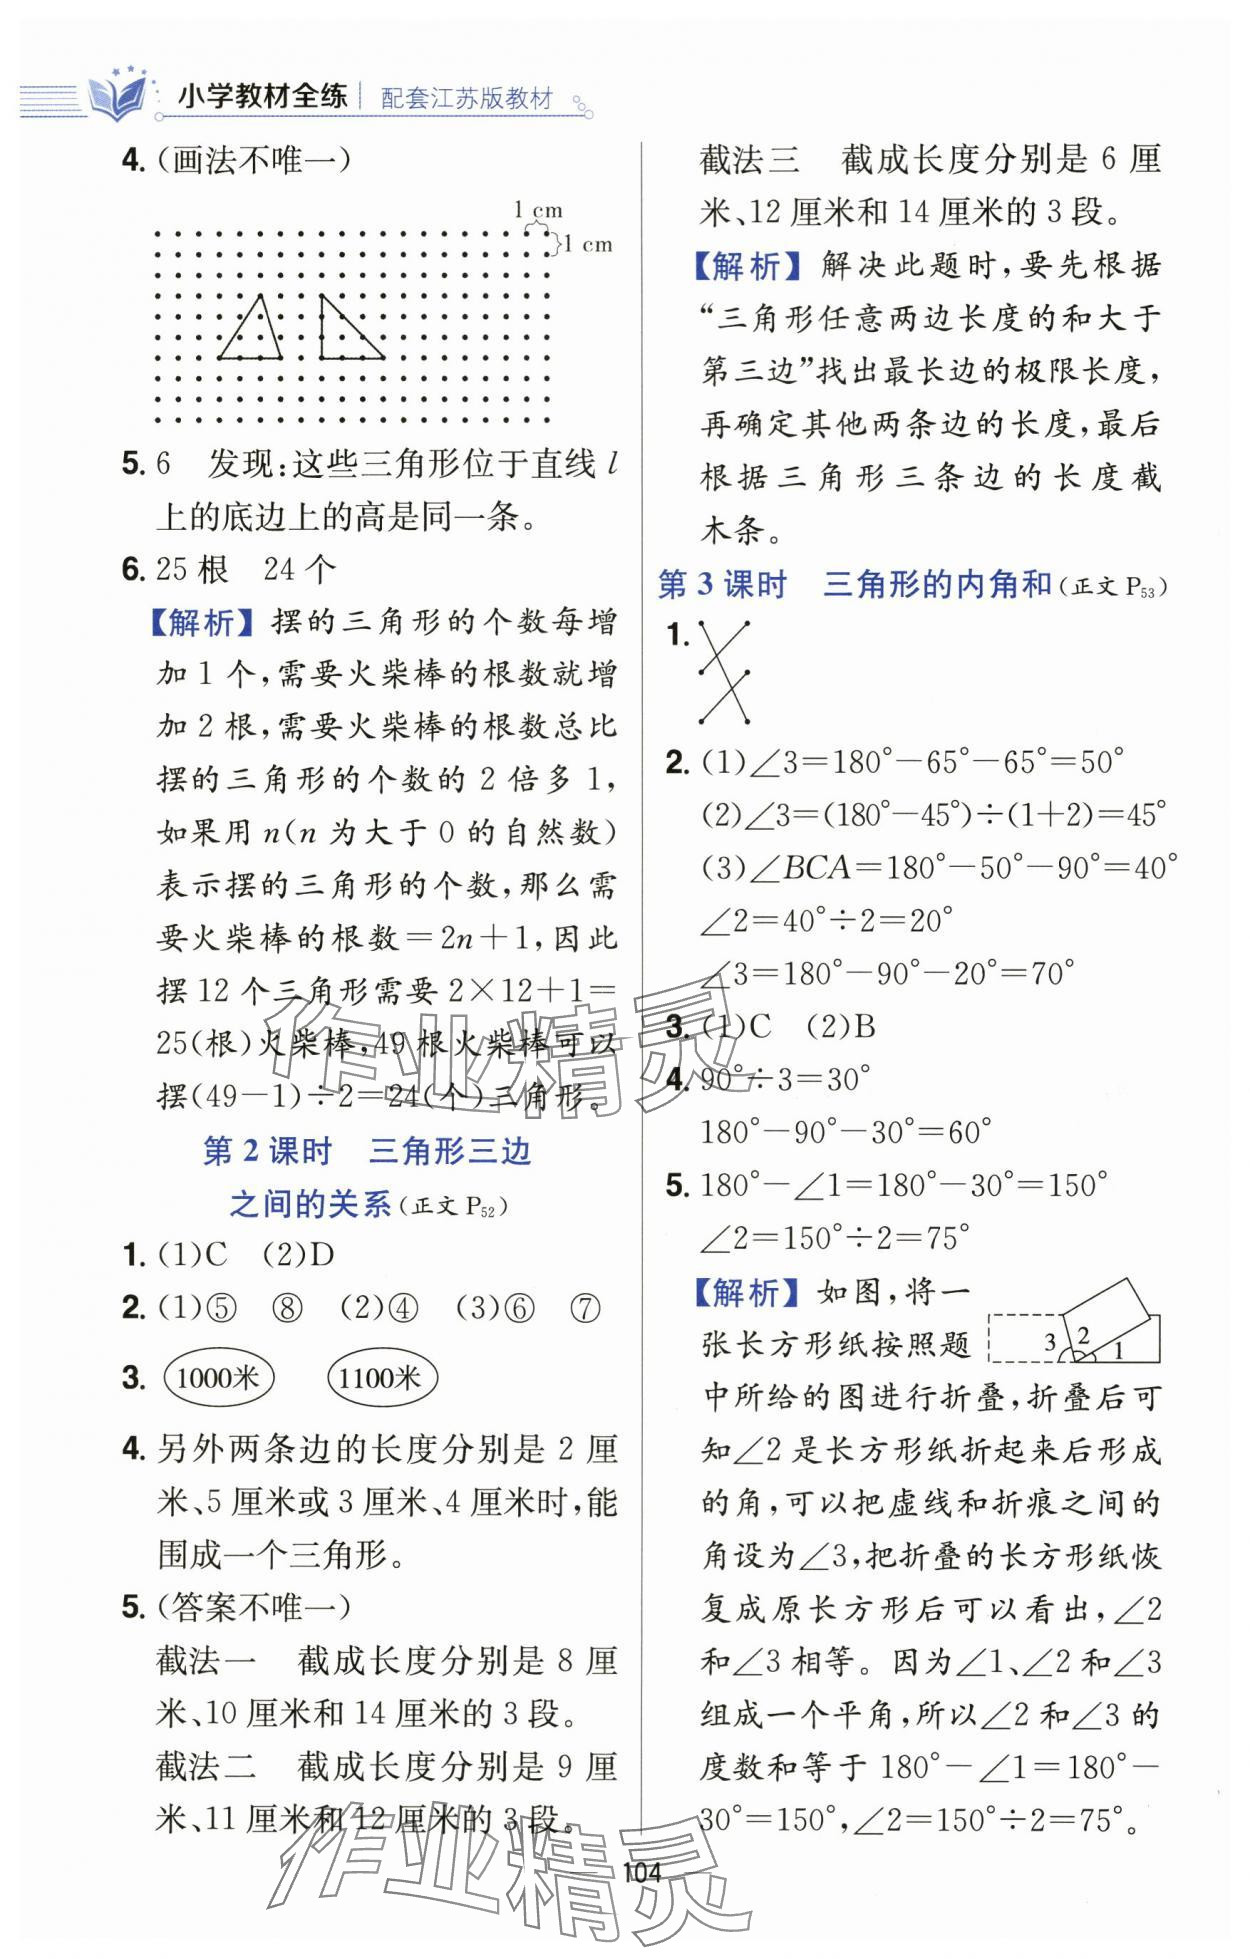 小学教材全练 配套江苏版教材
4. (画法不唯一)
1 cm
1 cm
5. 6 发现:这些三角形位于直线 l
上的底边上的高是同一条。
6. 25 根 24 个
【解析】摆的三角形的个数每增
加 1 个,需要火柴棒的根数就增
加 2 根,需要火柴棒的根数总比
摆的三角形的个数的 2 倍多 1,
如果用 n(n 为大于 0 的自然数)
表示摆的三角形的个数,那么需
要火柴棒的根数=2n+1,因此
摆 12 个三角形需要 2×12+1=
25(根)火柴棒,49 根火柴棒可以
摆(49-1)÷2=24(个)三角形。
第 2 课时 三角形三边
之间的关系(正文 P52)
1. (1)C (2)D
2. (1)⑤ ⑧ (2)④ (3)⑥ ⑦
3. 1000米 1100米
4. 另外两条边的长度分别是 2 厘
米、5 厘米或 3 厘米、4 厘米时,能
围成一个三角形。
5. (答案不唯一)
截法一 截成长度分别是 8 厘
米、10 厘米和 14 厘米的 3 段。
截法二 截成长度分别是 9 厘
米、11 厘米和 12 厘米的 3 段。
截法三 截成长度分别是 6 厘
米、12 厘米和 14 厘米的 3 段。
【解析】解决此题时,要先根据
“三角形任意两边长度的和大于
第三边”找出最长边的极限长度,
再确定其他两条边的长度,最后
根据三角形三条边的长度截
木条。
第 3 课时 三角形的内角和(正文 P53)
1.
2. (1)∠3=180°-65°-65°=50°
(2)∠3=(180°-45°)÷(1+2)=45°
(3)∠BCA=180°-50°-90°=40°
∠2=40°÷2=20°
∠3=180°-90°-20°=70°
3. (1)C (2)B
4. 90°÷3=30°
180°-90°-30°=60°
5. 180°-∠1=180°-30°=150°
∠2=150°÷2=75°
【解析】如图,将一
张长方形纸按照题
3 2 1
中所给的图进行折叠,折叠后可
知∠2 是长方形纸折起来后形成
的角,可以把虚线和折痕之间的
角设为∠3,把折叠的长方形纸恢
复成原长方形后可以看出,∠2
和∠3 相等。因为∠1、∠2 和∠3
组成一个平角,所以∠2 和∠3 的
度数和等于 180°-∠1=180°-
30°=150°,∠2=150°÷2=75°。
作业精灵
作业精灵
104